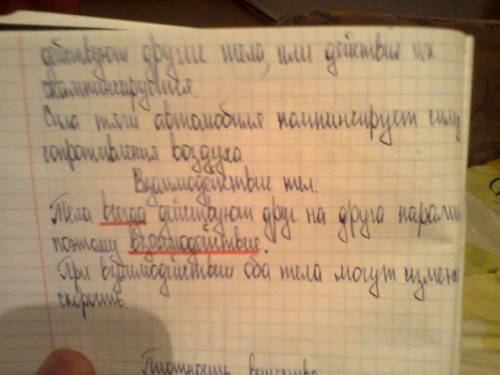 действуют другие тела, или действия их
скомпенсируются.
Сила тяги автомобиля компенсирует силу
сопротивления воздуха
Взаимодействие тел.
Тела всегда действуют друг на друга парами
поэтому взаимодействие.
При взаимодействии оба тела могут изменя
скорость.
Плотность вещества